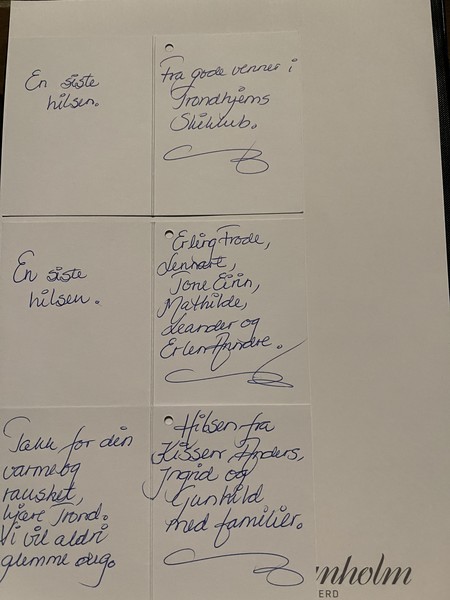 En siste
hilsen.
Fra gode venner i
Trondhjems
Skiklub.
En siste
hilsen.
Erling Frode,
Lennart,
Tone Eirin,
Mathilde,
Leander og
Erlend André.
Takk for din
varme og
raushet,
kjære Trond.
Vi vil aldri
glemme deg.
Hilsen fra
Anders,
Ingrid og
Gunhild
med familier.
nholm
ERD